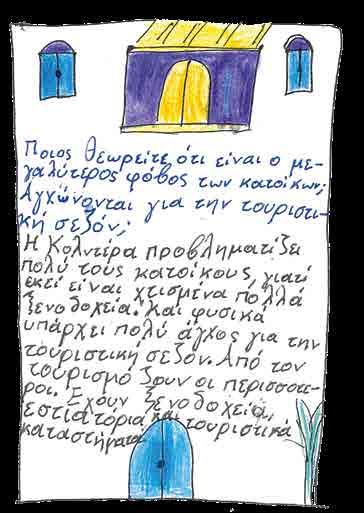 Ποιος θεωρείτε ότι είναι ο με-
γαλύτερος φόβος των κατοίκων;
Αγχώνονται για την τουριστι-
κή σεζόν;
Η Κολντέρα προβληματίζει
πολύ τους κατοίκους, γιατί
εκεί είναι χτισμένα πολλά
ξενοδοχεία. Και φυσικά
υπάρχει πολύ άγχος για την
τουριστική σεζόν. Από τον
τουρισμό ζουν οι περισσοτε-
ροι. Έχουν ξενοδοχεία,
εστιατόρια και τουριστικά
καταστήματα